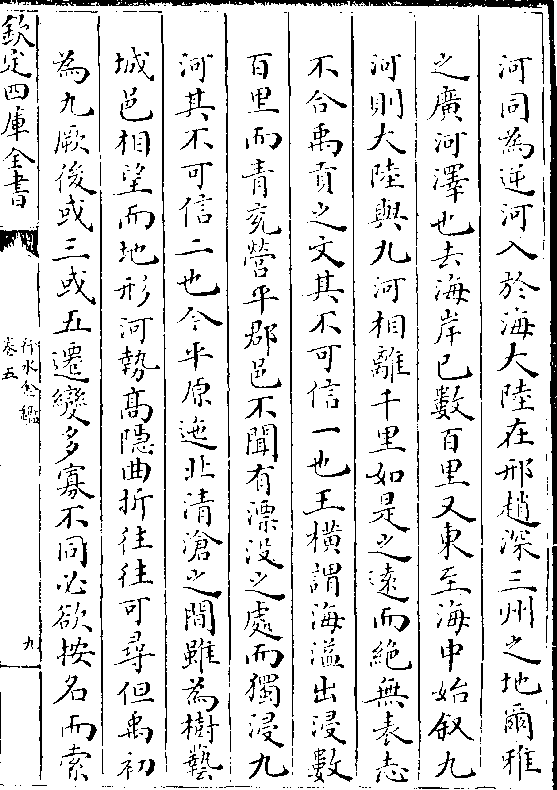 河同為逆河入於海大陸在邢趙深三州之地爾雅
之廣河澤也去海岸已數百里又東至海中始叙九
河則大陸與九河相離千里如是之遠而絶無表志
不合禹貢之文其不可信一也王横謂海溢出浸數
百里而青兖營平郡邑不聞有漂没之處而獨浸九
河其不可信二也今平原迤北清滄之間雖為樹藝
城邑相望而地形河勢高隠曲折往往可尋但禹初
為九厥後或三或五遷變多寡不同必欲按名而索
欽定四庫全書
行水金鑑
卷五
九